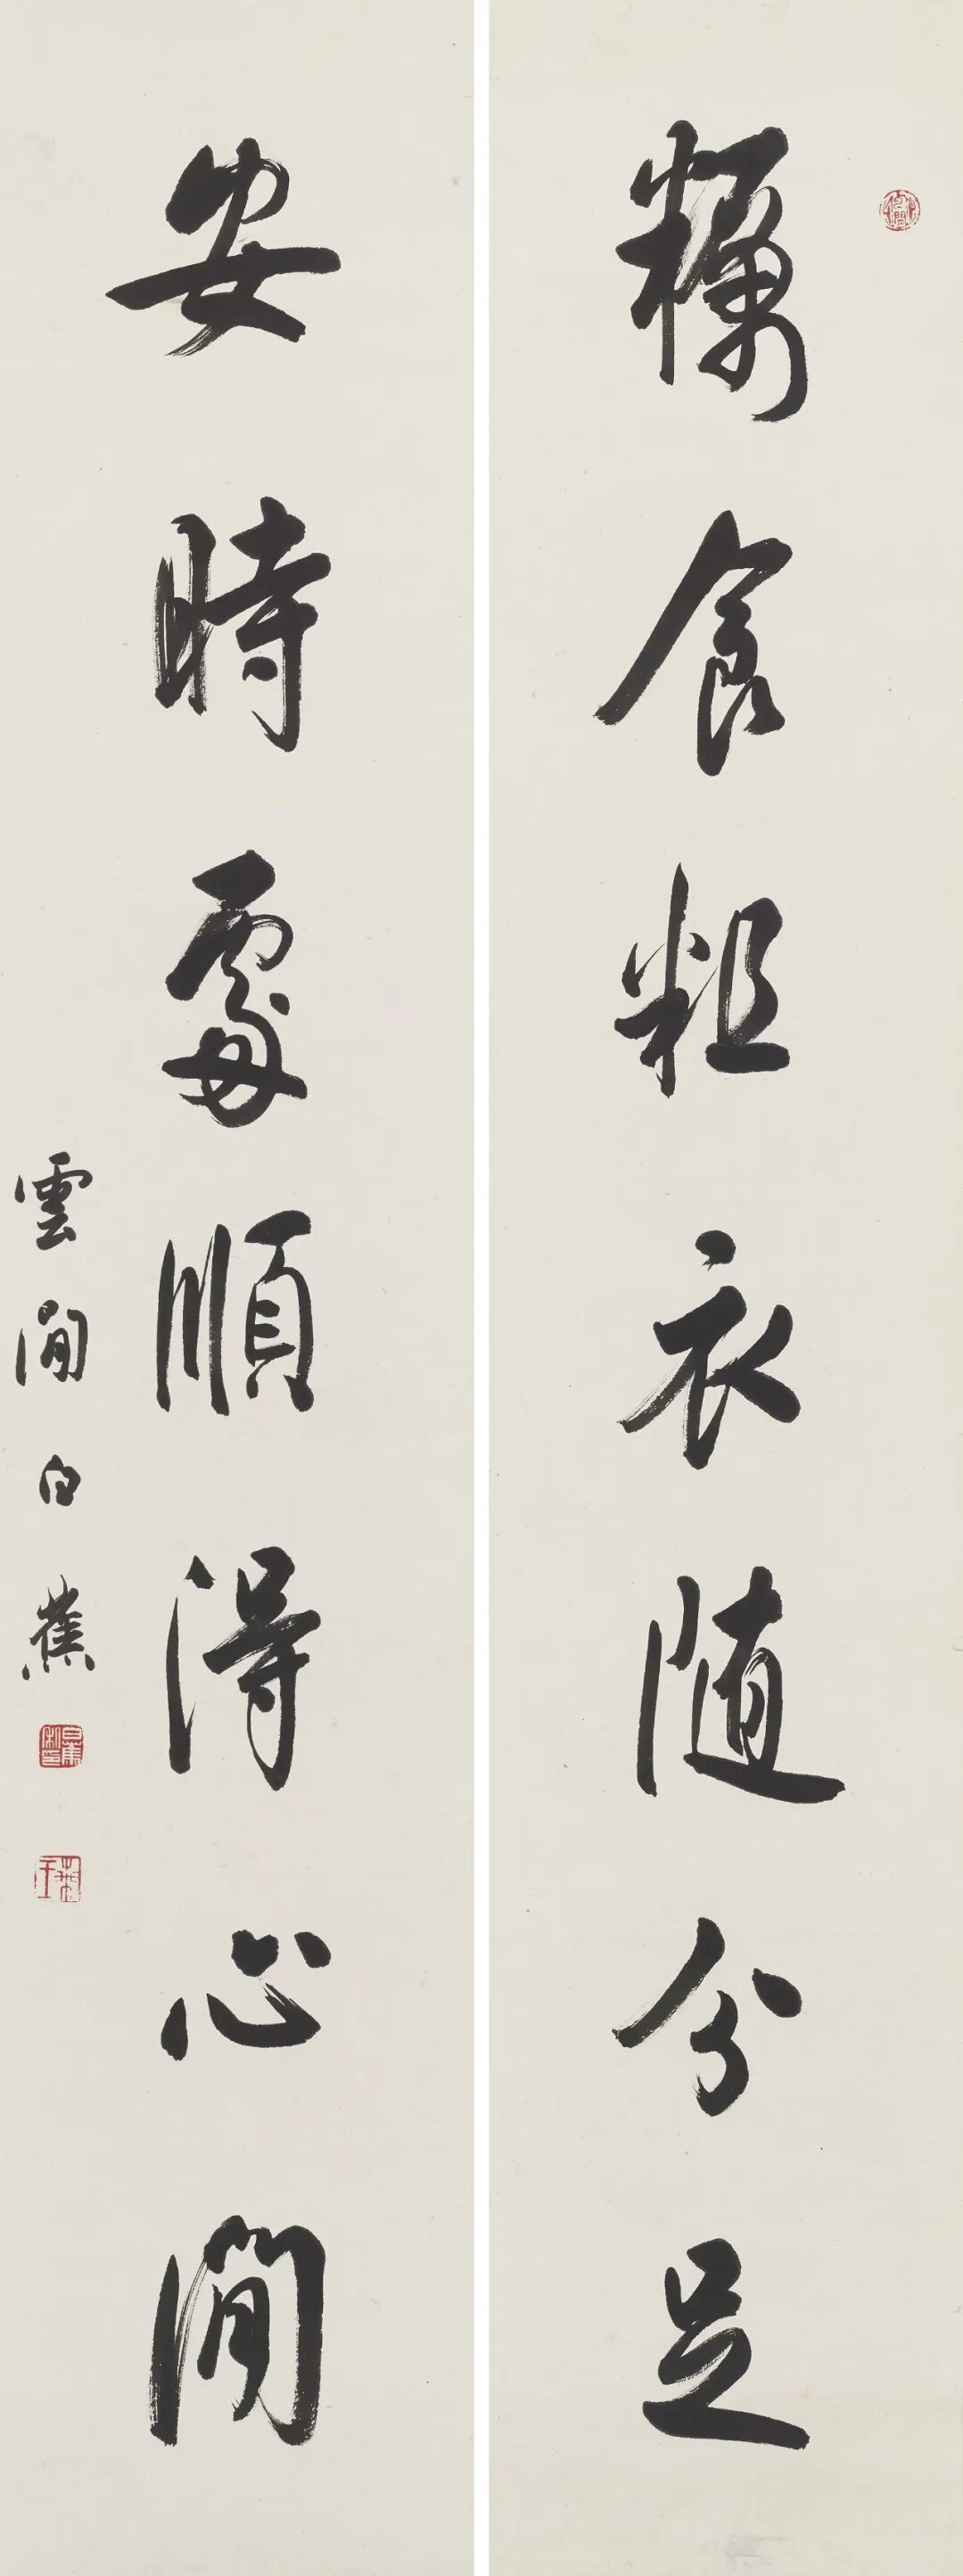 糲食粗衣随分足
安時處順得心閒
雲間白蕉